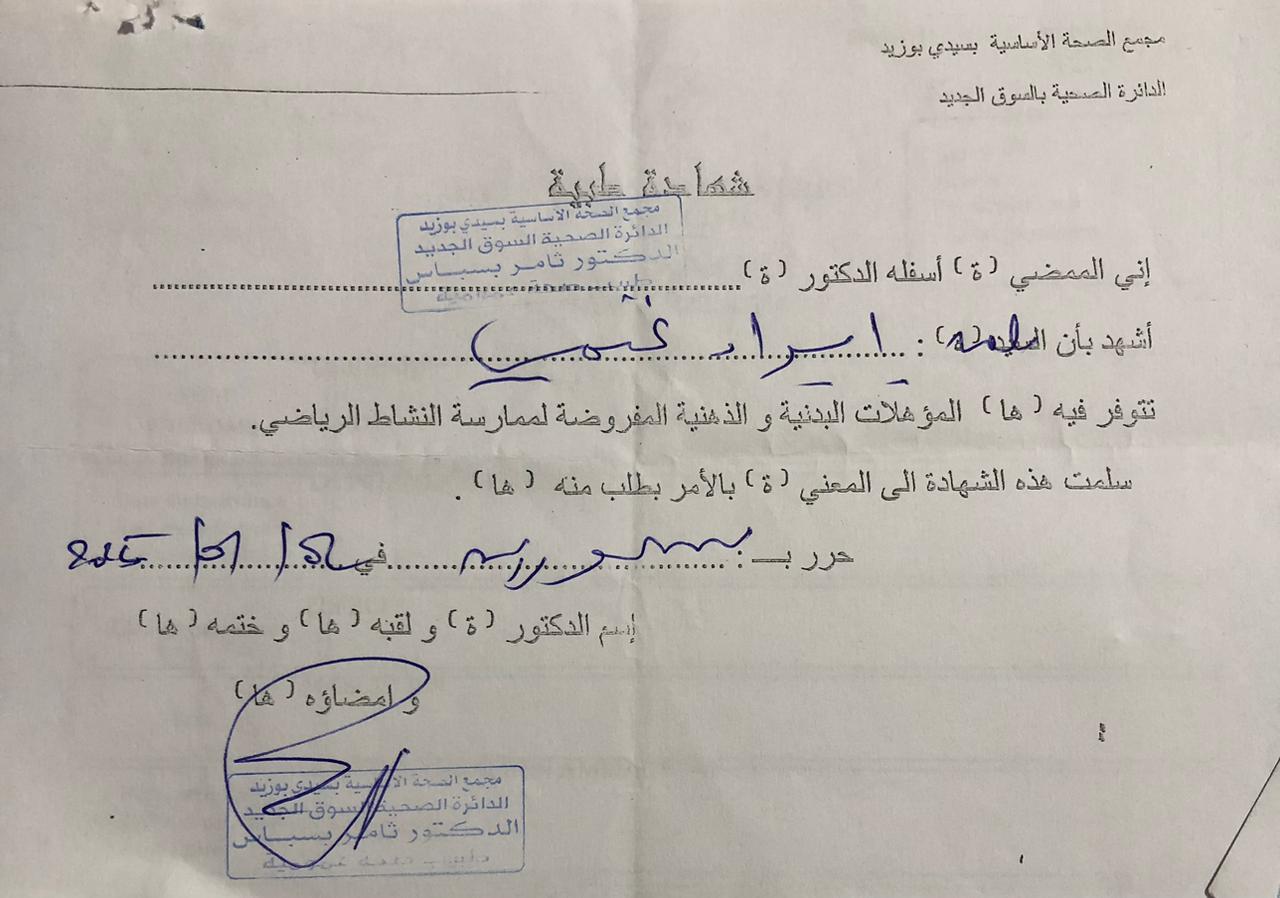 مجمع الصحة الأساسية بسيدي بوزيد
الدائرة الصحية بالسوق الجديد
شهادة طبية
مجمع الصحة الأساسية بسيدي بوزيد
الدائرة الصحية السوق الجديد
الدكتور ثامر بسباس
إني الممضي (ة) أسفله الدكتور (ة)
أشهد بأن (ة) :
تتوفر فيه (ها) المؤهلات البدنية و الذهنية المفروضة لممارسة النشاط الرياضي.
سلمت هذه الشهادة الى المعني (ة) بالأمر بطلب منه (ها) .
حرر بـ : في
إسم الدكتور (ة) و لقبه (ها) و ختمه (ها)
و امضاؤه (ها)
مجمع الصحة الأساسية بسيدي بوزيد
الدائرة الصحية السوق الجديد
الدكتور ثامر بسباس